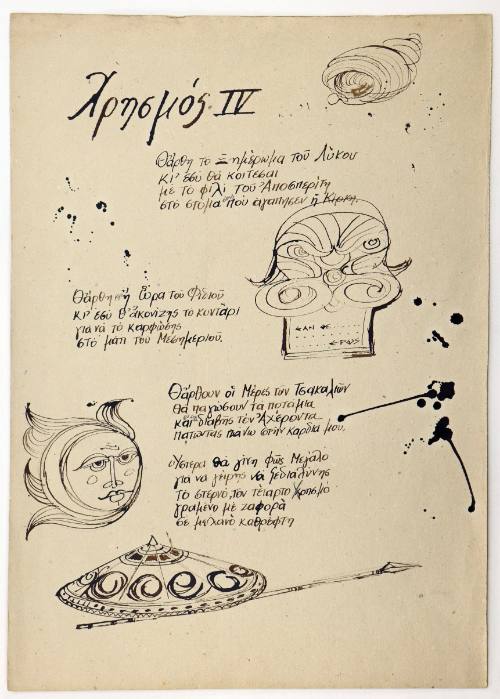 Χρησμός IV
Θἄρθη τὸ Ξημέρωμα τοῦ Λύκου
κι' ἐσὺ θὰ κοίτεσαι
μὲ τὸ φιλὶ τοῦ Ἀποσπερίτη
στὸ στόμα ποὺ ἀγάπησεν ἡ Κίρκη.
Θἄρθη ἡ Ὥρα τοῦ Φιδιοῦ
κι' ἐσὺ θ' ἀκονίζης τὸ κοντάρι
γιὰ νὰ τὸ καρφώσης
στὸ μάτι τοῦ Μεσημεριοῦ.
ΑΝ ΘΕ
ΦΩΣ
Θἄρθουν οἱ Μέρες τῶν Τσακαλιῶν
θὰ παγώσουν τὰ ποτάμια
καὶ θὰ διαβῆς τὸν Ἀχέροντα
πατώντας πάνω στὴν καρδιά μου.
Ὕστερα θὰ γίνη Φῶς Μεγάλο
γιὰ νὰ γείρης νὰ ξεδιαλύνης
τὸ στερνό, τὸν τέταρτο Χρησμὸ
γραμένο μὲ ζαφορὰ
σὲ καθρέφτη